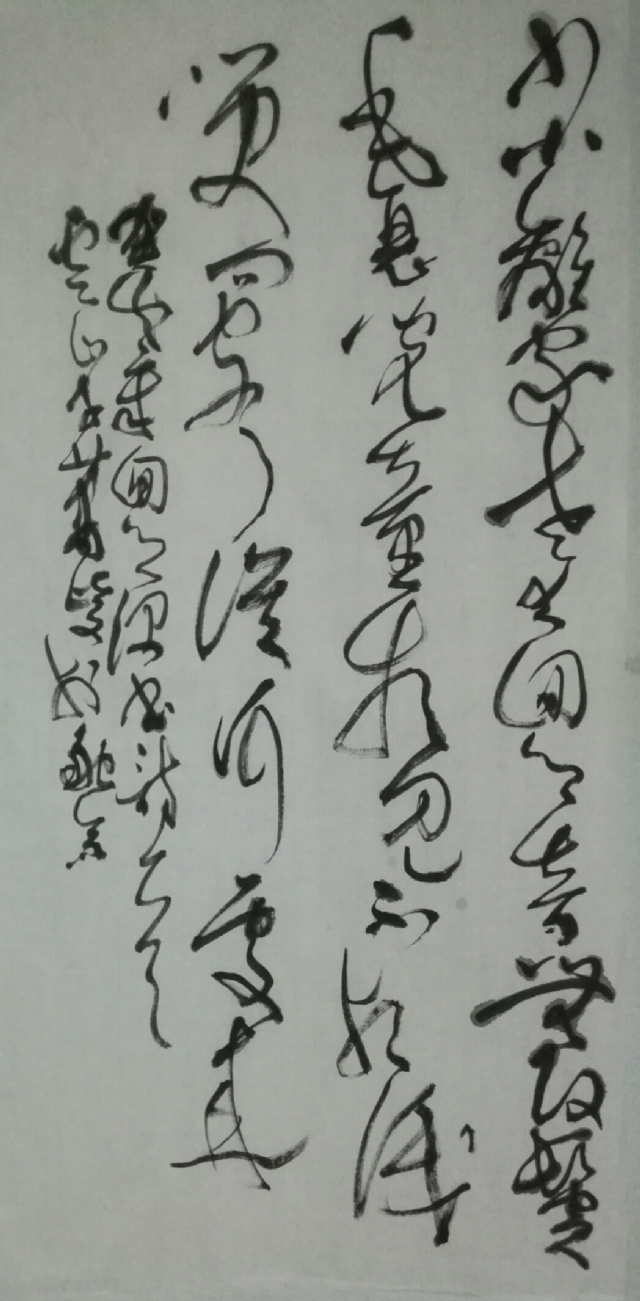 少小離家老大回鄉音無改鬢
毛衰兒童相見不相識
笑問客從何處來
賀知章回鄉偶書詩一首